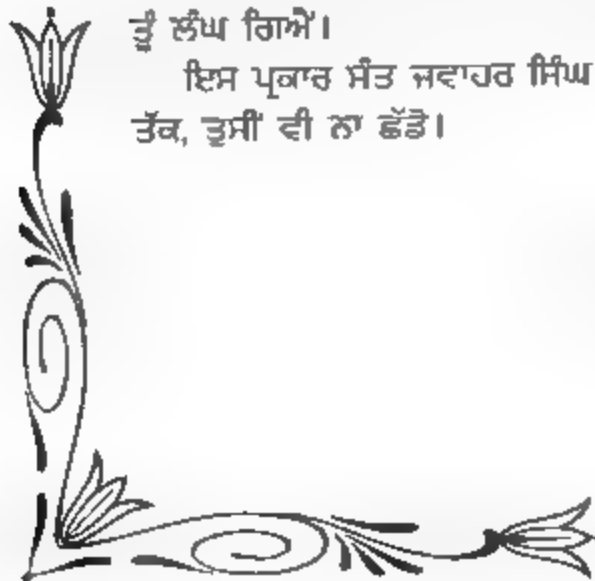 ਤੂੰ ਲੰਘ ਗਿਐਂ।
ਇਸ ਪ੍ਰਕਾਰ ਸੰਤ ਜਵਾਹਰ ਸਿੰਘ
ਤੱਕ, ਤੁਸੀਂ ਵੀ ਨਾ ਛੱਡੋ।